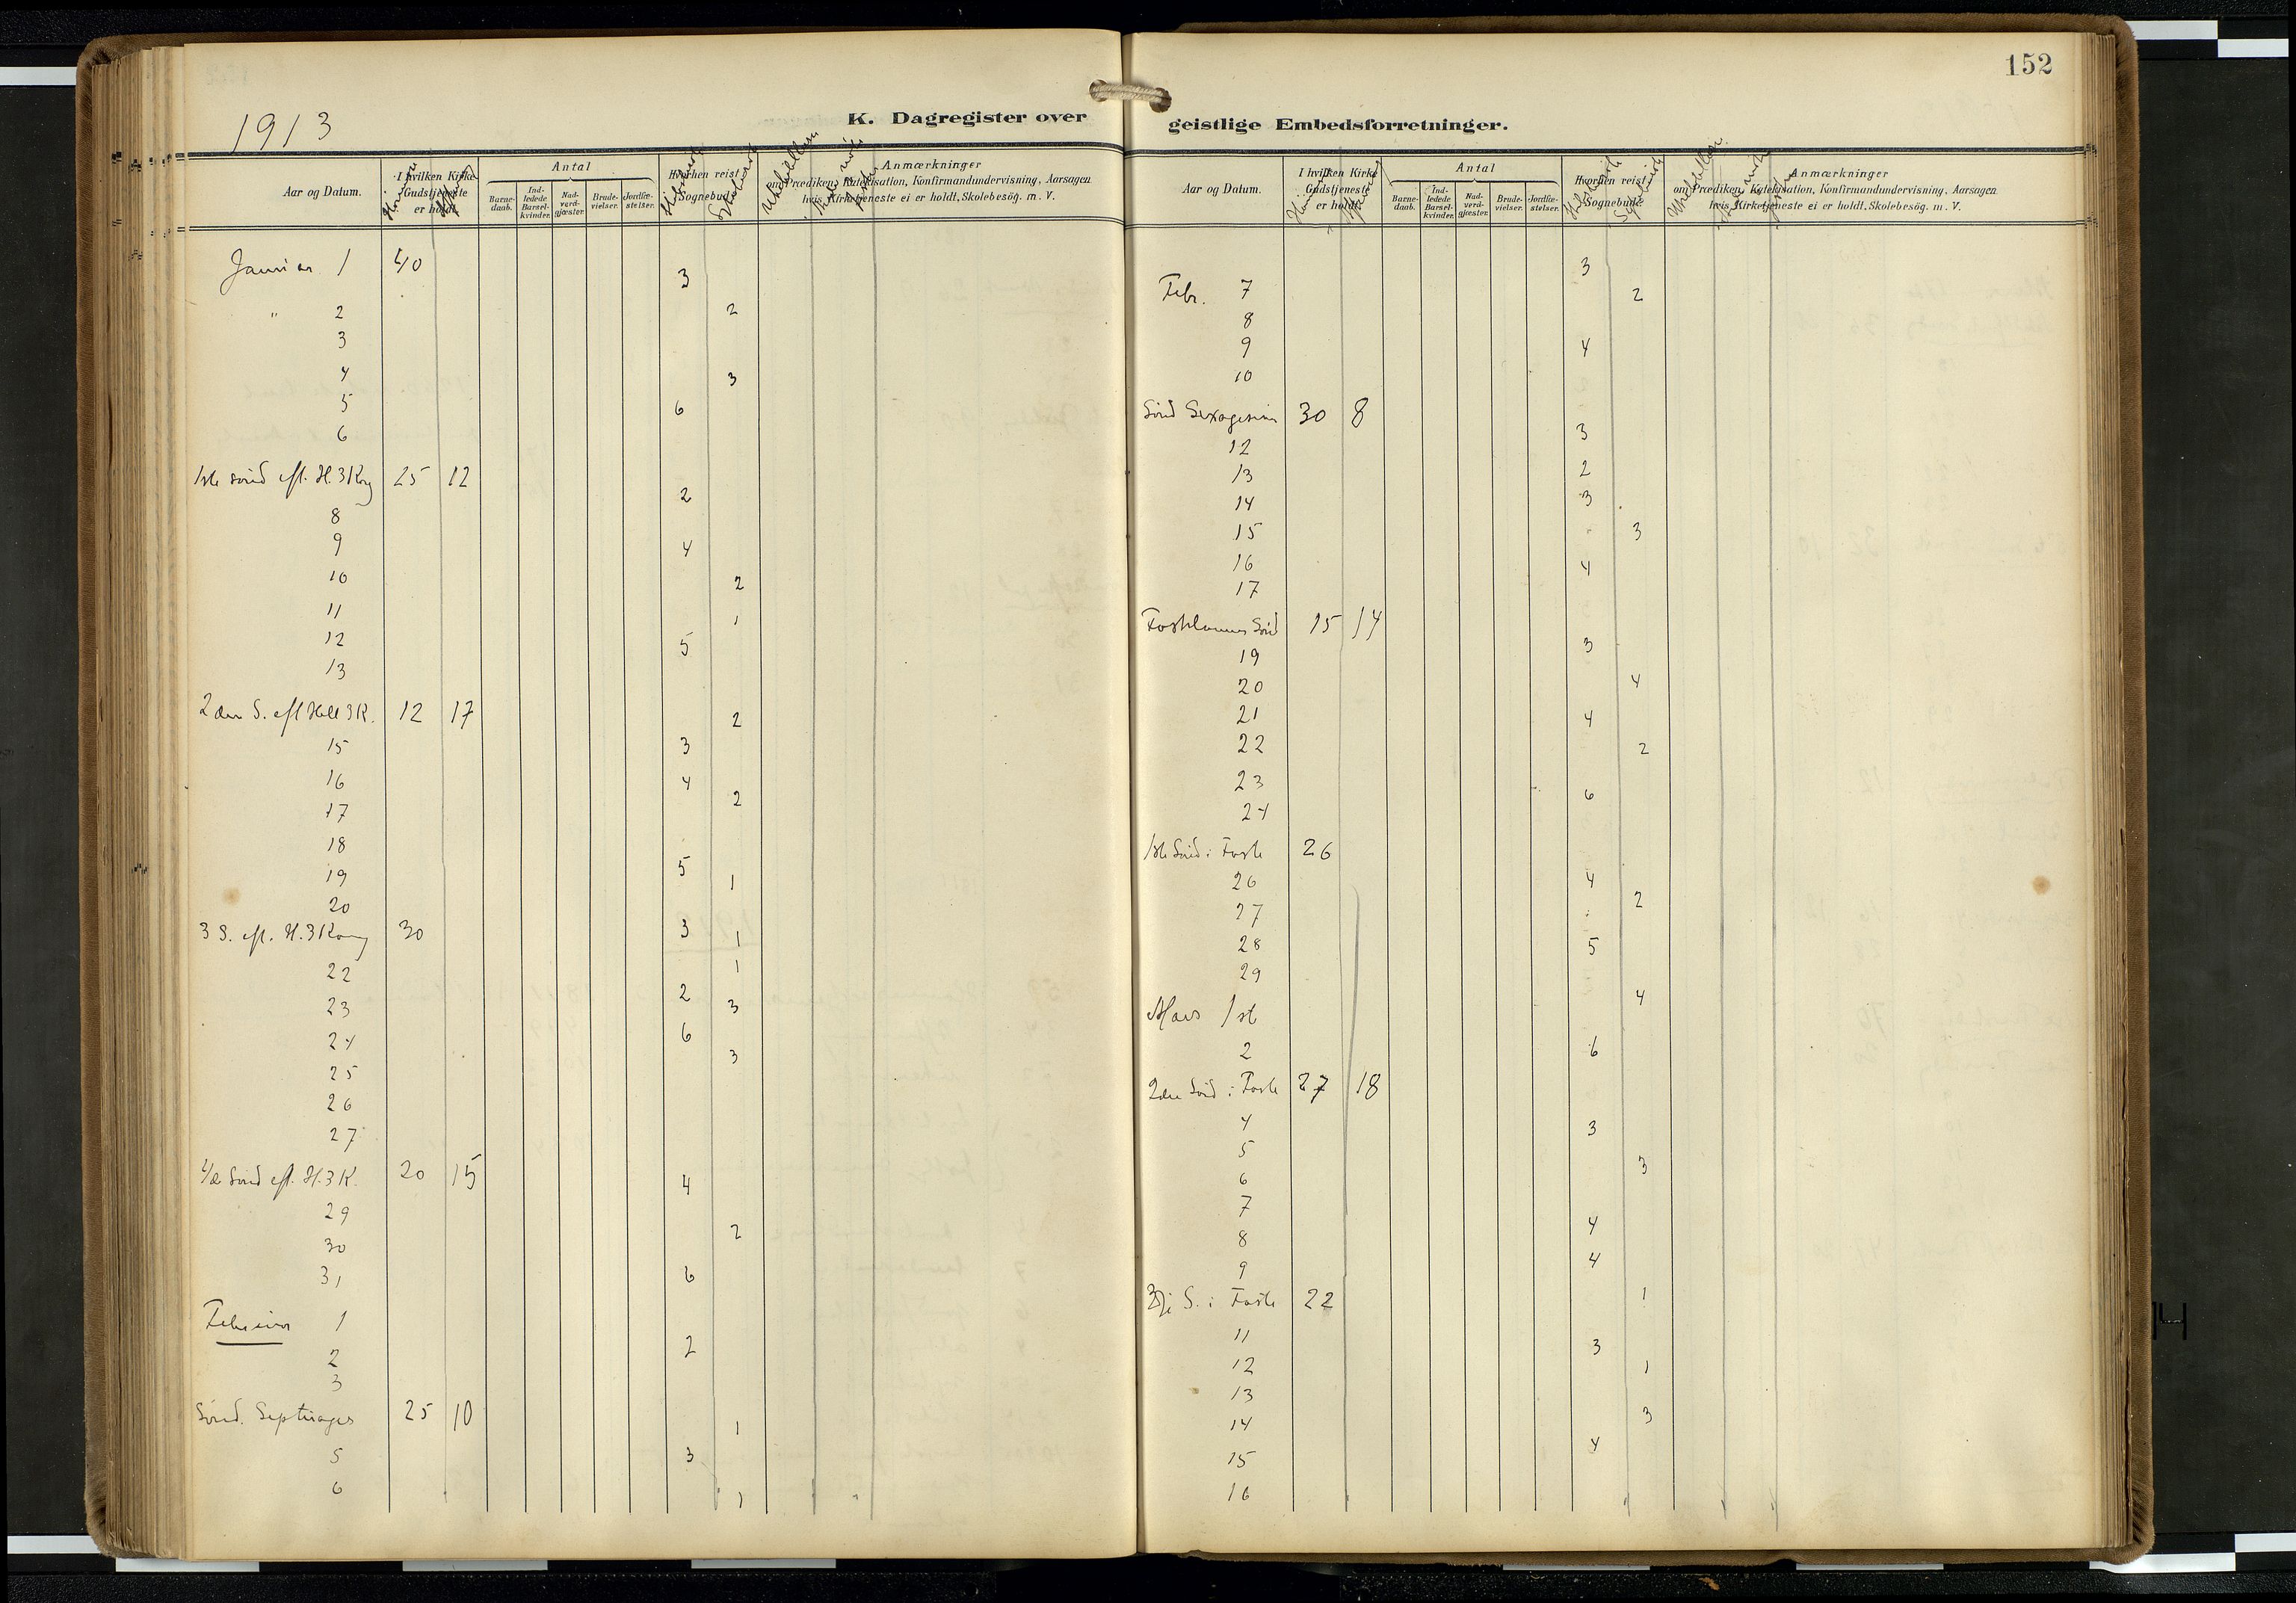 152
1913
K. Dagregister over geistlige Embedsforretninger.
Aar og Datum.
I hvilken Kirke Gudstjeneste er holdt.
Antal
Barne-daab.
Ind-ledede Barsel-kvinder.
Nad-verd-gjæster.
Brude-vielser.
Jordfæ-stelser.
Hvorhen reist i Sognebud.
Anmærkninger
om Prædiken, Katekisation, Konfirmandundervisning, Aarsagen
hvis Kirketjeneste ei er holdt, Skolebesög. m. V.
Januar 1 40
3
" 2 2
3
4 3
5 6
6
1ste sønd eft. H. 3 Kong 25 12
2
8
9 4
10 2
11 1
12 5
13
2den S. eft Hell 3 K. 12 17 2
15 3
16 4
2
17
18
5
19 1
20
3 S. eft. H. 3 Kong 30 3 1
22 1
2
23 3
24 6
3
25
26
27
4de Sønd eft. H. 3 K. 20 15 4
29
2
30
31 6
Februar 1
2 2
3
Sønd. Septuages 25 10
1
5 3
6 1
Aar og Datum.
I hvilken Kirke Gudstjeneste er holdt.
Antal
Barne-daab.
Ind-ledede Barsel-kvinder.
Nad-verd-gjæster.
Brude-vielser.
Jordfæ-stelser.
Hvorhen reist i Sognebud.
Anmærkninger
om Prædiken, Katekisation, Konfirmandundervisning, Aarsagen
hvis Kirketjeneste ei er holdt, Skolebesög. m. V.
3
Febr. 7 2
8
9 4
10
Sønd Sexagesima 30 8
3
12
13 2
14 3
15 3
16 4
17
Fastelavns Sønd 15 14
3
19
20 4
21 4
22 2
23
6
24
1ste Sønd i Faste 26
26 4
2
27
28 5
29
4
Mars 1ste
2 6
2den Sønd i Faste 27 18
4 3
5
3
6
7
4
8
9 4
3dje S. i Faste 22 1
11 3
12 1
13
14 3
4
15
16